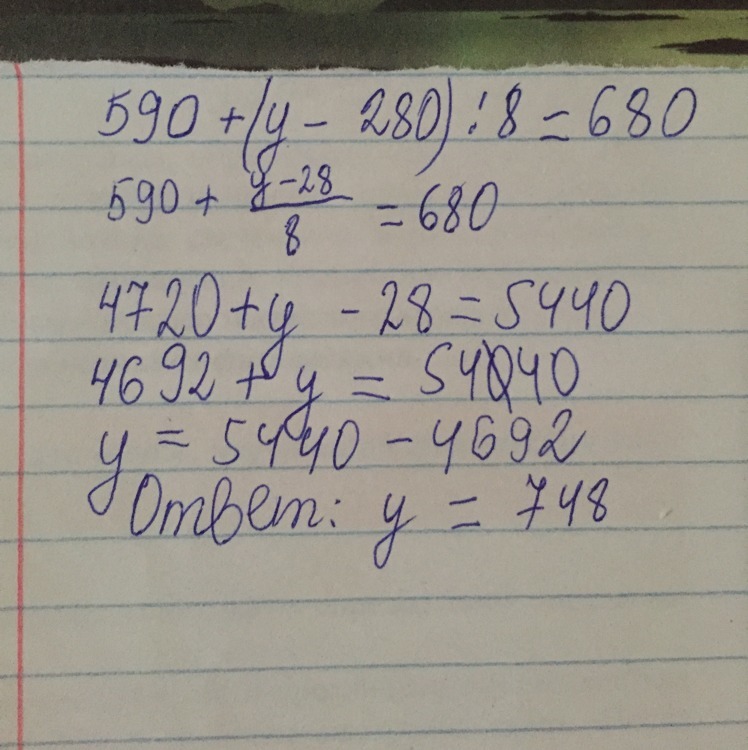 590 + (y - 280) : 8 = 680
590 + \frac{y - 28}{8} = 680
4720 + y - 28 = 5440
4692 + y = 5440
y = 5440 - 4692
Ответ: y = 748